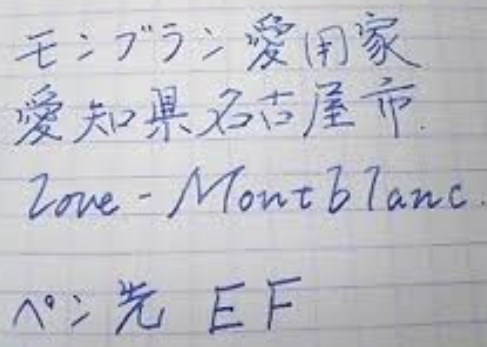 モンブラン愛用家
愛知県名古屋市.
love - Montblanc.
ペン先 EF